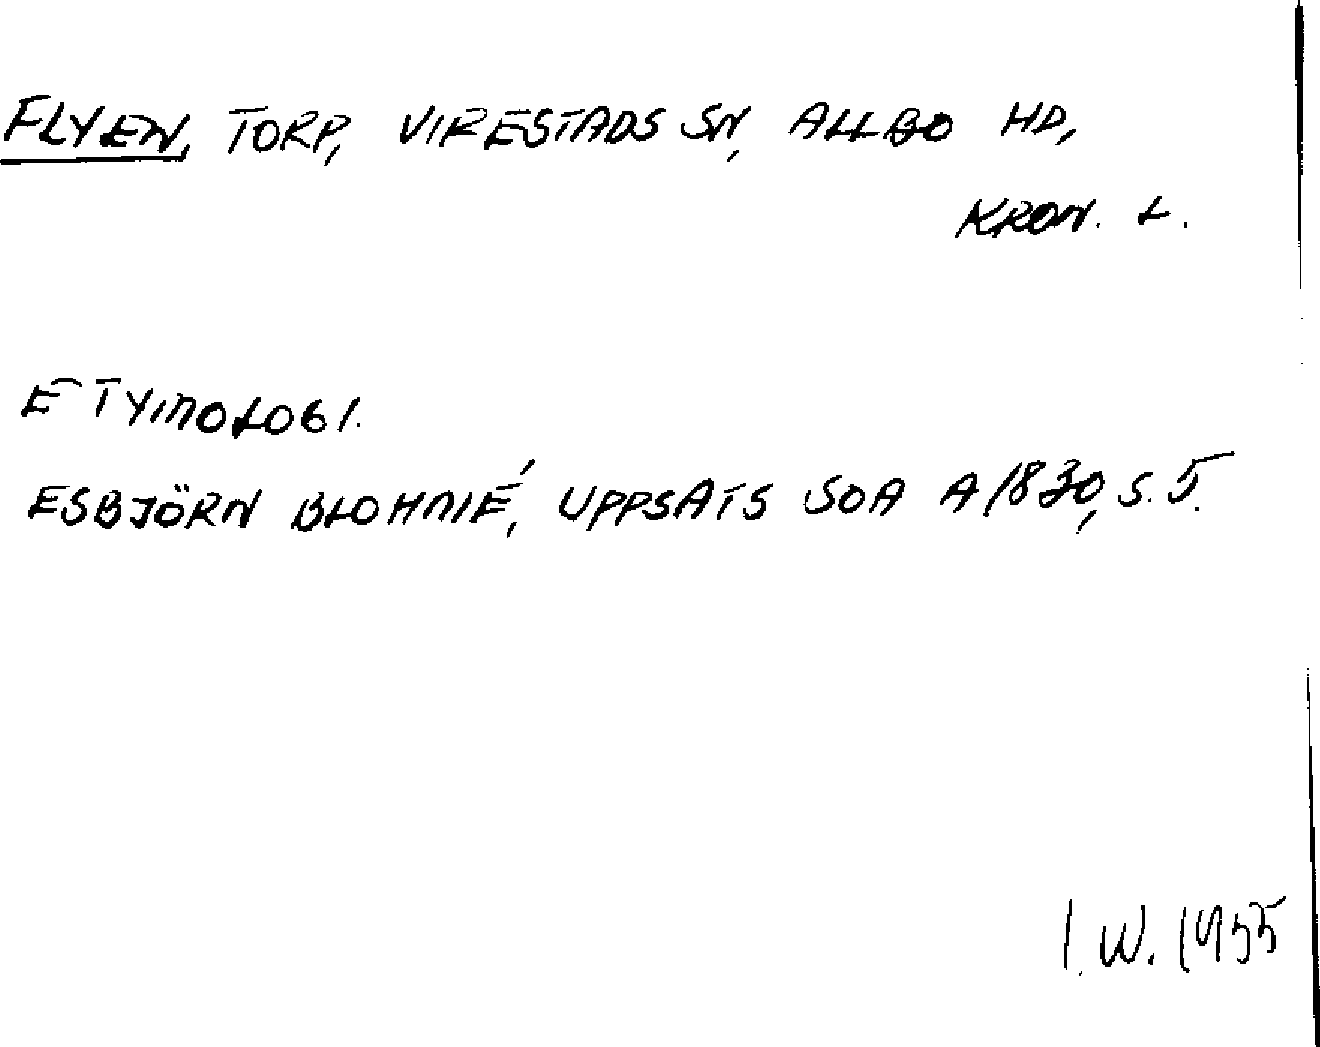 FLYEN, TORP, VIRESTADS SN, ALLBO HD,
KRON. L.
ETYMOLOGI.
ESBJÖRN BLOHMÉ, UPPSATS SOA A 1830, S. 5.
I. W. 1955